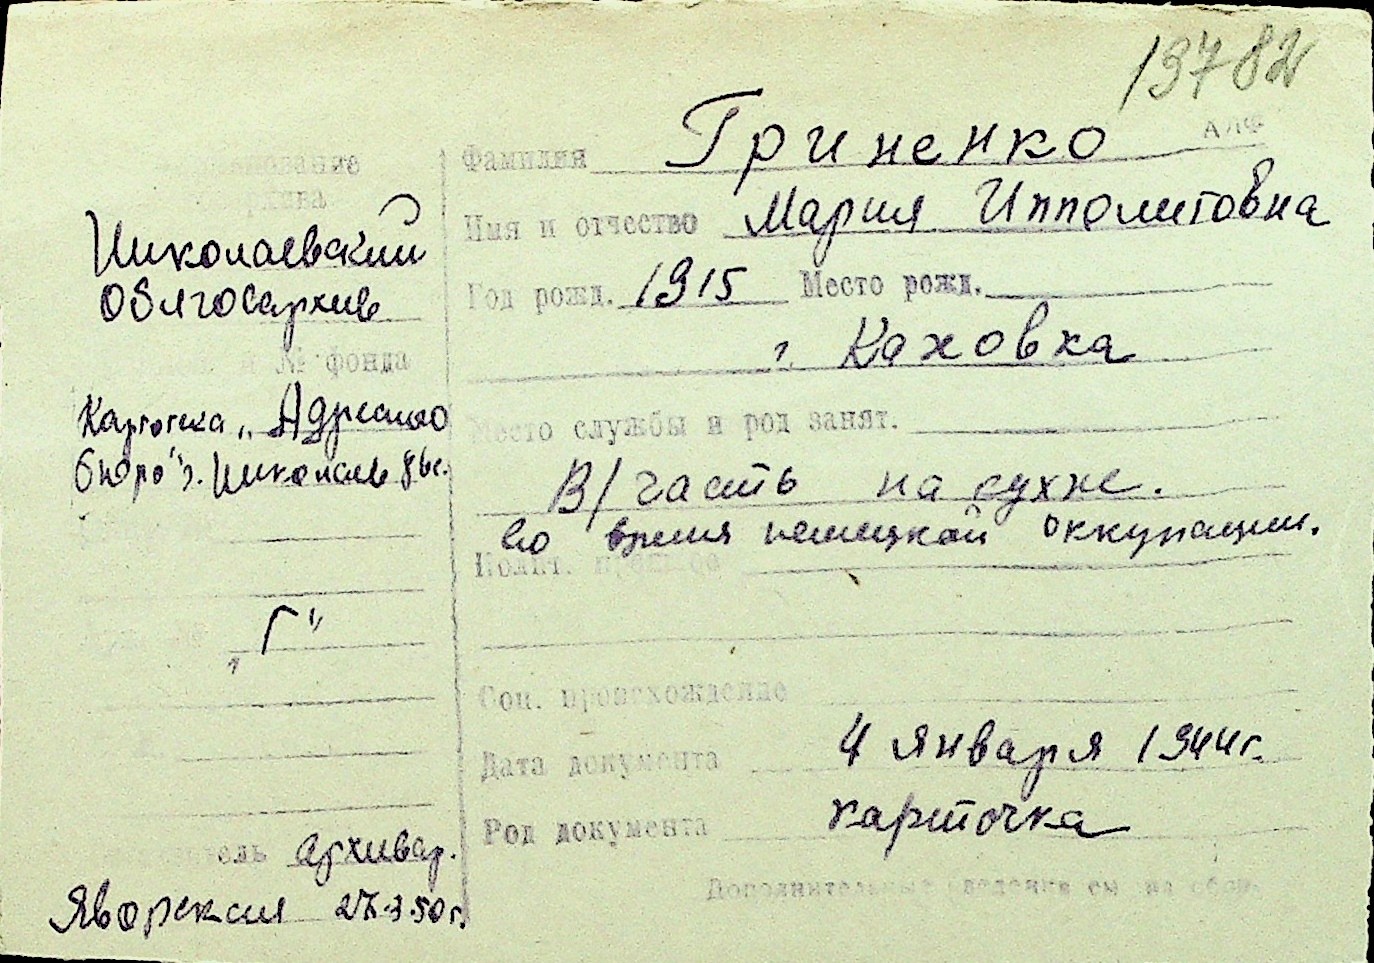 13782
АЛФ
Наименование
архива
Николаевский
Облгосархив
и № фонда
Картотека „Адресного
бюро" г. Николаев
„Г"
архивар.
Яворская 27.3.50г.
Фамилия Гриненко
Имя и отчество Мария Ипполитовна
Год рожд. 1915 Место рожд.
г. Каховка
Место службы и род занят.
В/часть на кухне.
во время немецкой оккупации.
Полит.
Соц. происхождение
Дата документа 4 января 1944г.
Род документа карточка
Дополнительные сведения см. на обор.